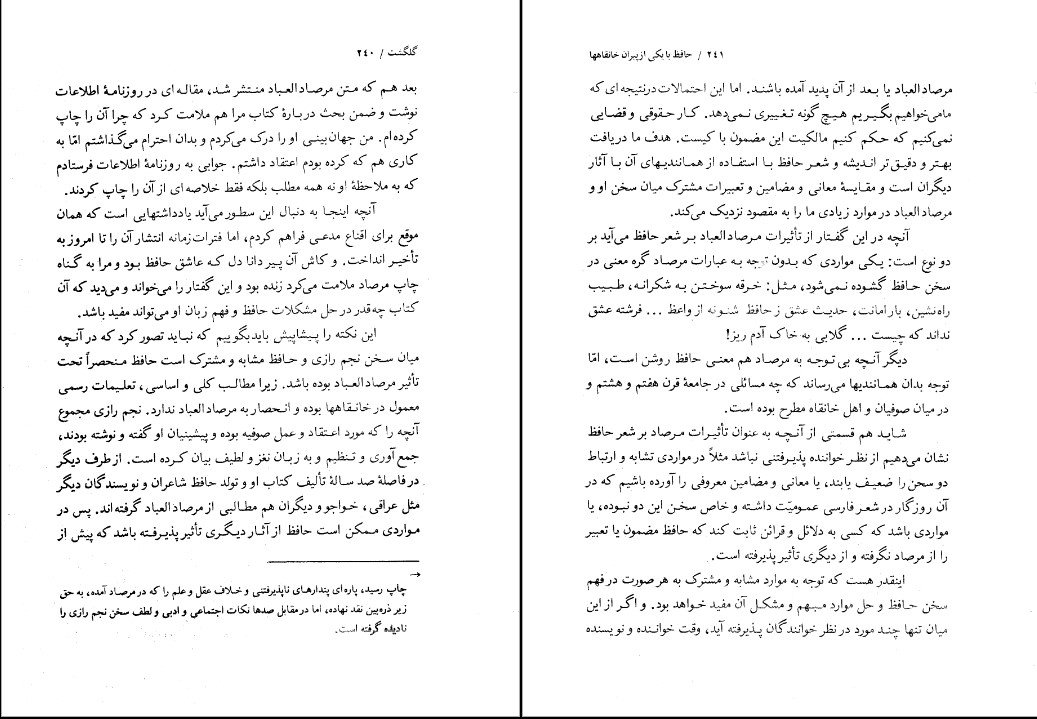 گلگشت / ۲۴۰
بعد هم که متن مرصادالعباد منتشر شد، مقاله ای در روزنامهٔ اطلاعات
نوشت و ضمن بحث دربارهٔ کتاب مرا هم ملامت کرد که چرا آن را چاپ
کرده‌ام. من جهان‌بینی او را درک می‌کردم و بدان احترام می‌گذاشتم امّا به
کاری هم که کرده بودم اعتقاد داشتم. جوابی به روزنامهٔ اطلاعات فرستادم
که به ملاحظهٔ او نه همه مطلب بلکه فقط خلاصه ای از آن را چاپ کردند.
آنچه اینجا به دنبال این سطور می‌آید یادداشتهایی است که همان
موقع برای اقناع مدعی فراهم کردم، اما فترات زمانه انتشار آن را تا امروز به
تأخیر انداخت. و کاش آن پیر دانا دل که عاشق حافظ بود و مرا به گناه
چاپ مرصاد ملامت می‌کرد زنده بود و این گفتار را می‌خواند و می‌دید که آن
کتاب چه‌قدر در حل مشکلات حافظ و فهم زبان او می‌تواند مفید باشد.
این نکته را پیشاپیش باید بگوییم که نباید تصور کرد که در آنچه
میان سخن نجم رازی و حافظ مشابه و مشترک است حافظ منحصراً تحت
تأثیر مرصادالعباد بوده باشد. زیرا مطالب کلی و اساسی، تعلیمات رسمی
معمول در خانقاهها بوده و انحصار به مرصادالعباد ندارد. نجم رازی مجموع
آنچه را که مورد اعتقاد و عمل صوفیه بوده و پیشینیان او گفته و نوشته بودند،
جمع آوری و تنظیم و به زبان نغز و لطیف بیان کرده است. از طرف دیگر
در فاصلهٔ صد سالهٔ تألیف کتاب او و تولد حافظ شاعران و نویسندگان دیگر
مثل عراقی، خواجو و دیگران هم مطالبی از مرصادالعباد گرفته‌اند. پس در
مواردی ممکن است حافظ از آثار دیگری تأثیر پذیرفته باشد که پیش از
→
چاپ رسید، پاره ای پندارهای ناپذیرفتنی و خلاف عقل و علم را که در مرصاد آمده، به حق
زیر ذره‌بین نقد نهاده، اما در مقابل صدها نکات اجتماعی و ادبی و لطف سخن نجم رازی را
نادیده گرفته است.
۲۴۱ / حافظ با یکی از پیران خانقاهها
مرصادالعباد یا بعد از آن پدید آمده باشند. اما این احتمالات درنتیجه ای که
مامی‌خواهیم بگیریم هیچ گونه تغییری نمی‌دهد. کار حقوقی و قضایی
نمی‌کنیم که حکم کنیم مالکیت این مضمون با کیست. هدف ما دریافت
بهتر و دقیق‌تر اندیشه و شعر حافظ با استفاده از همانندیهای آن با آثار
دیگران است و مقایسهٔ معانی و مضامین و تعبیرات مشترک میان سخن او و
مرصادالعباد در موارد زیادی ما را به مقصود نزدیک می‌کند.
آنچه در این گفتار از تأثیرات مرصادالعباد بر شعر حافظ می‌آید بر
دو نوع است: یکی مواردی که بدون توجه به عبارات مرصاد گره معنی در
سخن حافظ گشوده نمی‌شود، مثل: خرقه سوختن به شکرانه، طبیب
راه‌نشین، بار امانت، حدیث عشق ز حافظ شنو نه از واعظ ... فرشته عشق
نداند که چیست ... گلابی به خاک آدم ریز!
دیگر آنچه بی توجه به مرصاد هم معنی حافظ روشن است، امّا
توجه بدان همانندیها می‌رساند که چه مسائلی در جامعهٔ قرن هفتم و هشتم و
در میان صوفیان و اهل خانقاه مطرح بوده است.
شاید هم قسمتی از آنچه به عنوان تأثیرات مرصاد بر شعر حافظ
نشان می‌دهیم از نظر خواننده پذیرفتنی نباشد مثلاً در مواردی تشابه و ارتباط
دو سخن را ضعیف یابند، یا معانی و مضامین معروفی را آورده باشیم که در
آن روزگار در شعر فارسی عمومیّت داشته و خاص سخن این دو نبوده، یا
مواردی باشد که کسی به دلائل و قرائن ثابت کند که حافظ مضمون یا تعبیر
را از مرصاد نگرفته و از دیگری تأثیر پذیرفته است.
اینقدر هست که توجه به موارد مشابه و مشترک به هر صورت در فهم
سخن حافظ و حل موارد مبهم و مشکل آن مفید خواهد بود. و اگر از این
میان تنها چند مورد در نظر خوانندگان پذیرفته آید، وقت خواننده و نویسنده